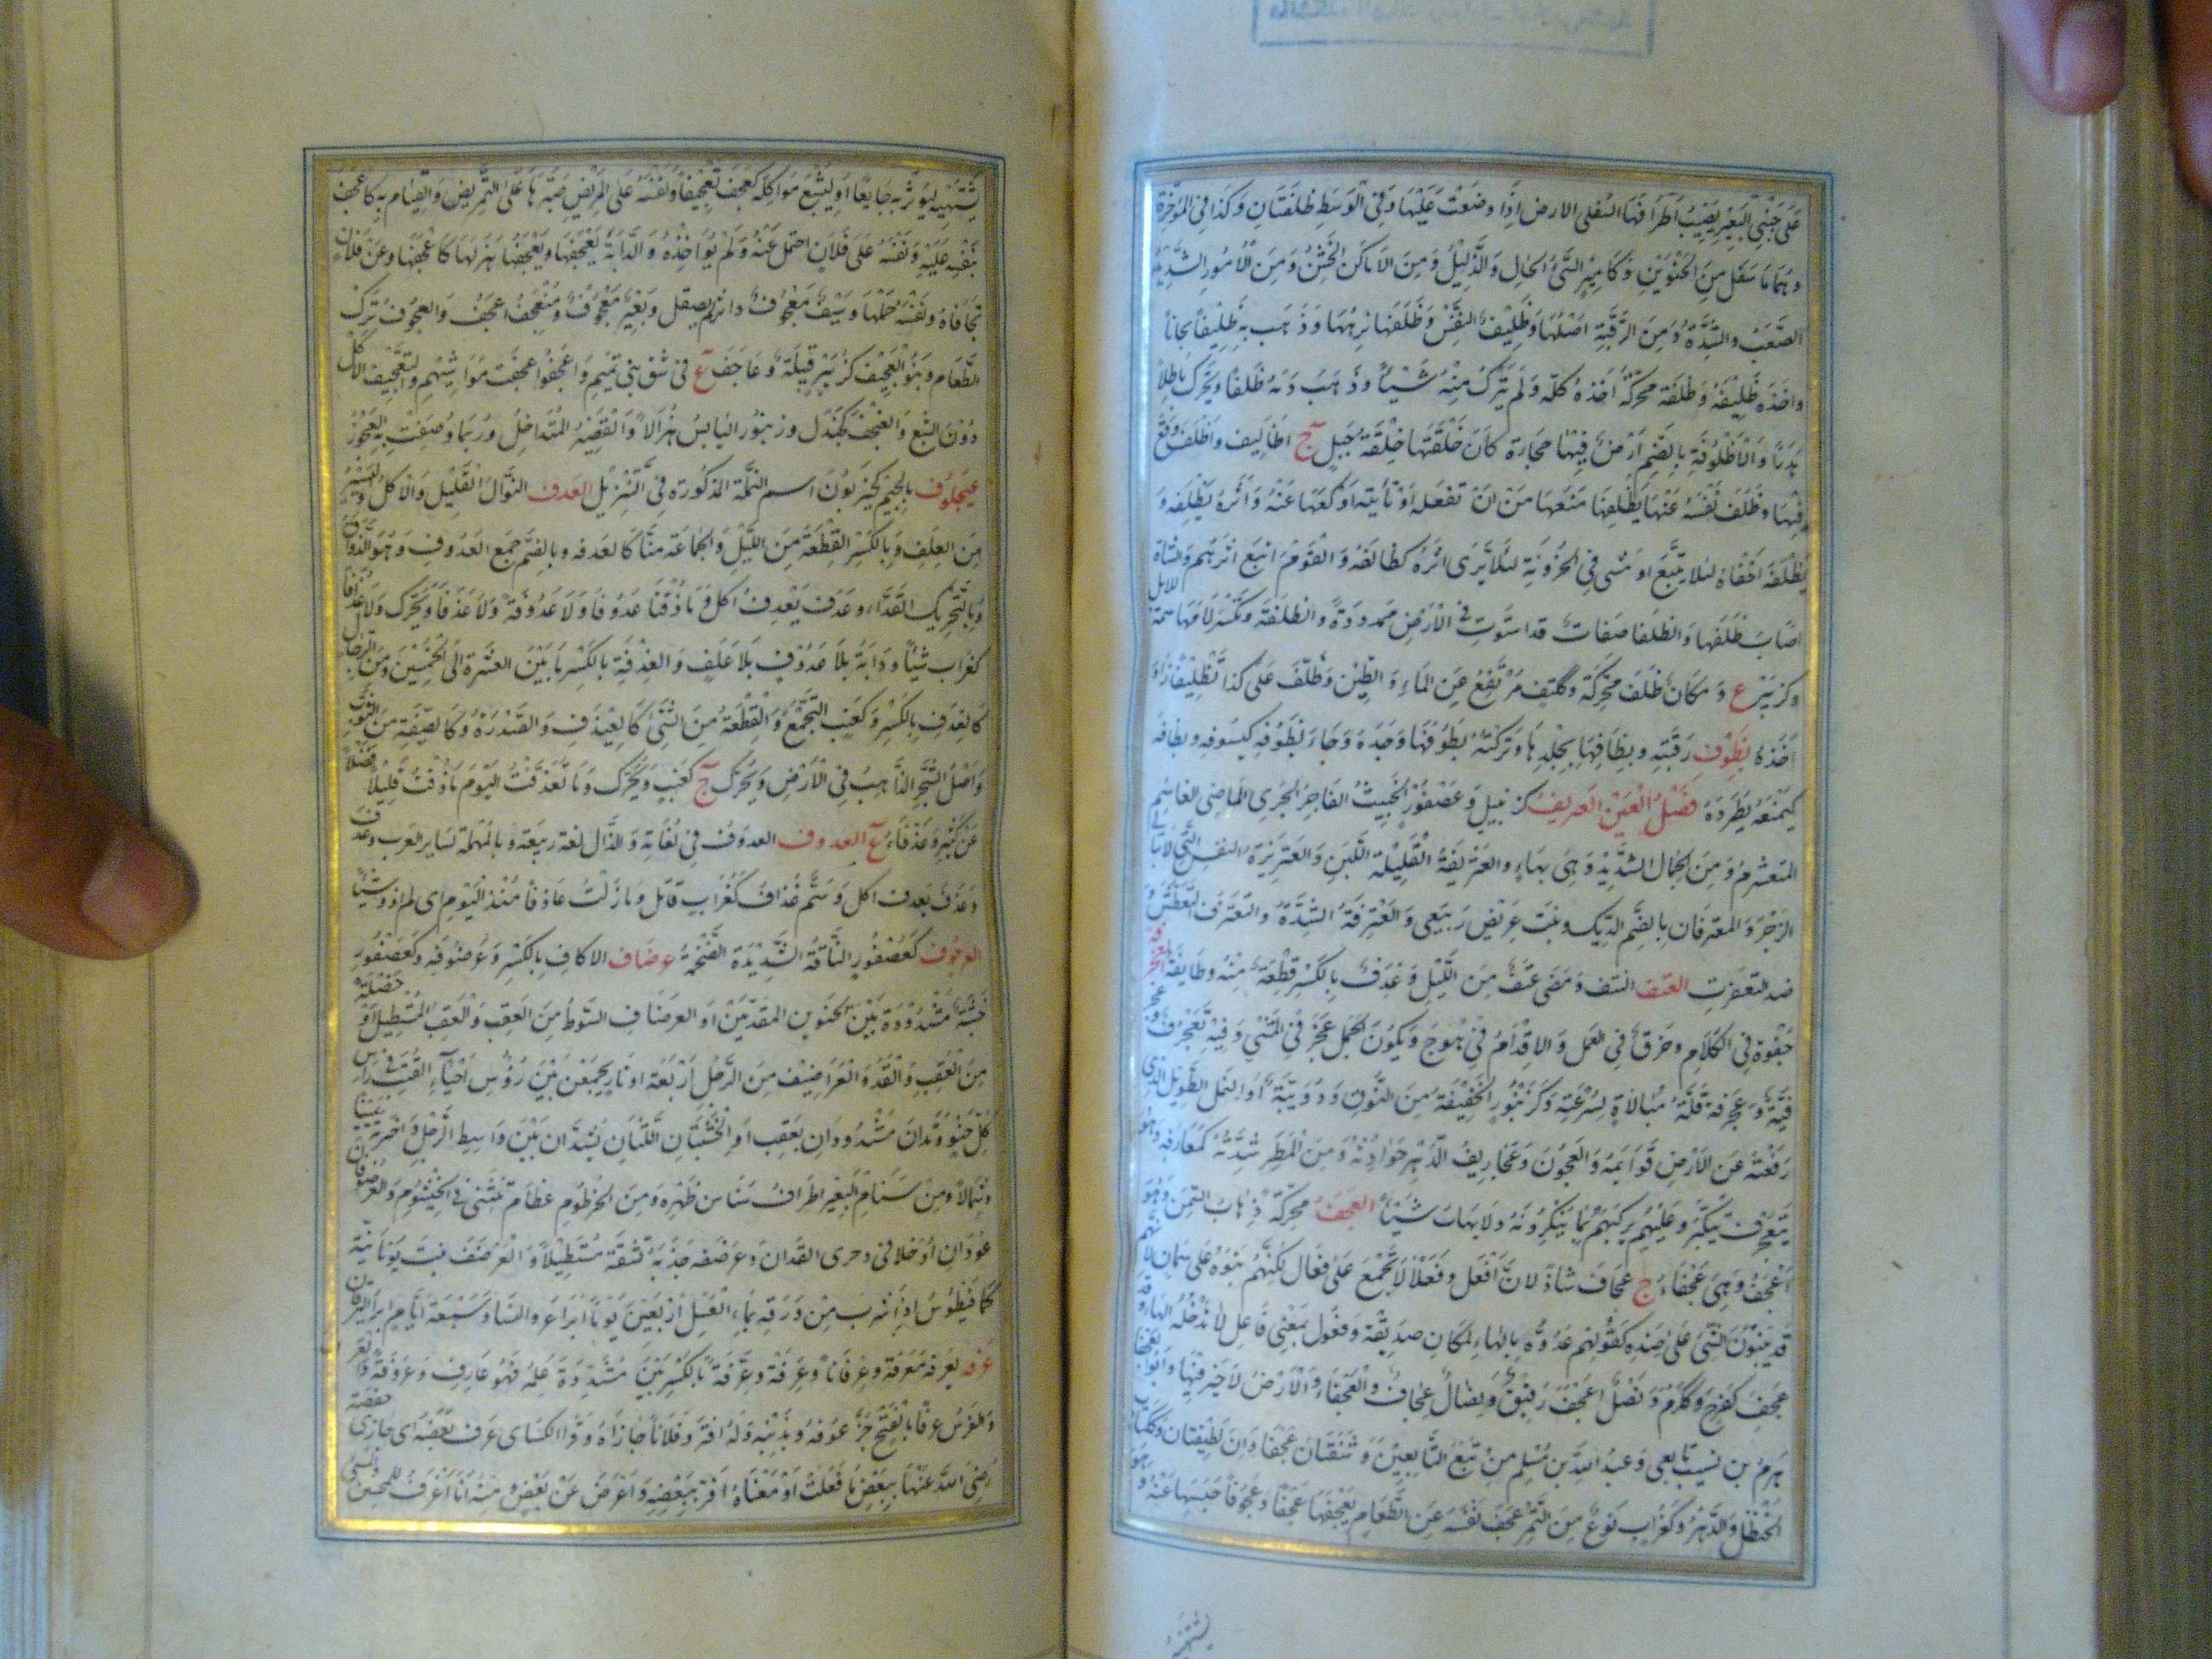 على جنبى البعير يصيب اطرافها السفلى الارض اذا وضعت عليها وفى الوسط ظلفتان وكذا فى المؤخرة
وهما ما سفل من الحنوين وكامير السئ الحال والذليل ومن الاماكن الخشن ومن الامور الشديد
الصعب والشدة ومن الرقبة اصلها وظليف النفس وظلفها نزهها وذهب به ظليفا مجانا
واخذه بظليفه وظلفه محركة اخذه كله ولم يترك منه شيئا وذهب دمه ظلفا ويحرك باطلا
هدرا والاظلوفة بالضم ارض فيها حجارة كان خلقتها خلقة جبل ج اظاليف واظلف وقع
فيها وظلف نفسه عنها يظلفها منعها من ان تفعله او تأتيه او كفها عنه واثره يظلفه و
يظلفه اخفاه لئلا يتبع او مشى فى الحزونة لئلا يرى اثره كظالفه والقوم اتبع اثرهم والشاة
اصاب ظلفها والظلفا صفات قد استوت فى الارض ممدودة والظلفة وتكسر لامها سمة للابل
وكزبير ع و مكان ظلف محركة وككتف مرتفع عن الماء والطين وظلف على كذا تظليفا زاد
اخذه بظوف رقبته وبظافها بجلدها وتركته بظوفها وحده وجاء يظوفه كيسوفه ويظافه
كيمنعه يطرده فصل العين العتريف كزنبيل وعصفور الخبيث الفاجر الجرى الماضى الغاشم
المتغشرم ومن الجمال الشديد وهى بهاء والعتريفة القليلة اللبن والعزيزة النفس التى لا تبالى
الزجر والعترفان بالضم الديك ونبت عريض ربيعى والعترفة الشدة والتعترف التغطرس و
ضد التعفرت العتف النتف ومضى عتف من الليل وعدف بالكسر قطعة منه وطايفة العجرفة
جفوة فى الكلام وخرق فى العمل والاقدام فى هوج ويكون الجمل عجر فى المشى وفيه تعجرف وعجر
فية وعجرفة قلة مبالاة لسرعته وكزنبور الخفيفة من النوق ودويبة او النمل الطويل الذى
رفعته عن الارض قوايمه والعجوز وعجاريف الدهر حوادثه ومن المطر شدته كعجارفه وهو
يتعجرف يتكبر وعليهم يركبهم بما يكرهونه ولا يهاب شيئا العجف محركة ذهاب السمن وهو
اعجف وهى عجفاء ج عجاف شاذ لان افعل وفعلاء لا يجمع على فعال لكنهم بنوه على سمان لانهم
قد يبنون الشئ على ضده كقولهم عدوة بالهاء لمكان صديقة وفعول بمعنى فاعل لا تدخله الهاء وقد
عجف كفرح وكرم ونصل اعجف رقيق ونصال عجاف والعجفاء الارض لا خير فيها وابو العجفا
هرم بن نسيب تابعى وعبد الله بن مسلم من تبع التابعين وشفتان عجفاوان لطيفتان وككتاب
الحنظل والدهر وكغراب نوع من التمر عجف نفسه عن الطعام يعجفها عجفا وعجوفا حبسها عنه وهو
يشتهيه
يشتهيه ليوثر به جايعا او ليشبع مواكله كعجف تعجيفا ونفسه على المريض صبرها على التمريض والقيام به كاعجف
بنفسه عليه ونفسه على فلان احتمل عنه ولم يواخذه والدابة يعجفها ويعجفها هزلها كاعجفها وعن فلان
تجافاه ونفسه حلمها وسيف معجوف داثر لم يصقل وبعير معجوف ومنعجف اعجف والعجوف ترك
الطعام وبنو العجيف كزبير قبيلة وعاجف ع فى شق بنى تميم واعجفوا عجفت مواشيهم والتعجيف الاكل
دون الشبع والعنجف كجندل وزنبور اليابس هزالا والقصير المتداخل وربما وصفت به العجوز
عيجلوف بالجيم كحيزبون اسم النملة المذكورة فى التنزيل العدف النوال القليل والاكل واليسير
من العلف وبالكسر القطعة من الليل والجماعة منا كالعدفة وبالضم جمع العدوف وهو الذواق
وبالتحريك القذاء وعدف يعدف اكل و ما ذقنا عدوفا ولا عدوفة ولا عدفا ويحرك ولا عدافا
كغراب شيئا ودابة بلا عدوف بلا علف والعدفة بالكسر ما بين العشرة الى الخمسين ومن الرجال
كالعدف بالكسر وكعنب التجمع والقطعة من الشئ كالعيدف والصدرة وكالصنفة من الثوب
واصل الشجر الذاهب فى الارض ويحرك ج كعنب ويحرك وما تعدفت اليوم ما ذقت قليلا فضلا
عن كثير وعدفاء ع العذوف العدوف فى لغاته والذال لغة ربيعة وبالمهملة لساير العرب وعذف
وعذف يعذف اكل وسم عذاف كغراب قاتل وما زلت عاذفا منذ اليوم اى لم اذق شيئا
العرجوف كعصفور الناقة الشديدة الضخمة عرصاف الاكاف بالكسر وعرصوفه وكعصفور
خشبة مشدودة بين الحنوين المقدمين او العرصاف السوط من العقب والعقب المستطيل او خصلة
من العقب والقد والعراصيف من الرحل اربعة اوتاد يجمعن بين رؤس احناء القتب فى راس
كل حنو وتدان مشدودان بعقب او الخشبتان اللتان تشدان بين واسط الرحل واخرته يمينا
وشمالا ومن سنام البعير اطراف سناسن ظهره ومن الخرطوم عظام تنثنى فى الخيشوم والعرصوفان
عودان ادخلا فى دجرى الفدان وعرصفه جذبه فشقه مستطيلا والعرصف نبت يونانيته
كمافيطوس اذا شرب من ورقه بماء العسل اربعين يوما ابرا عرق النسا وسبعة ايام ابرا اليرقان
عرفه يعرفه معرفة وعرفانا وعرفة وعرفة بالكسرتين مشددة علمه فهو عارف وعروفة و
والفرس عرفا بالفتح جز عرفه وبذنبه وله اقر وفلانا جازاه وقرا الكسائى عرف بعضه اى جازى حفصة
رضى الله عنها ببعض ما فعلت او معناه اقر ببعضه واعرض عن بعض ومنه انا اعرف للمحسن والمسئ